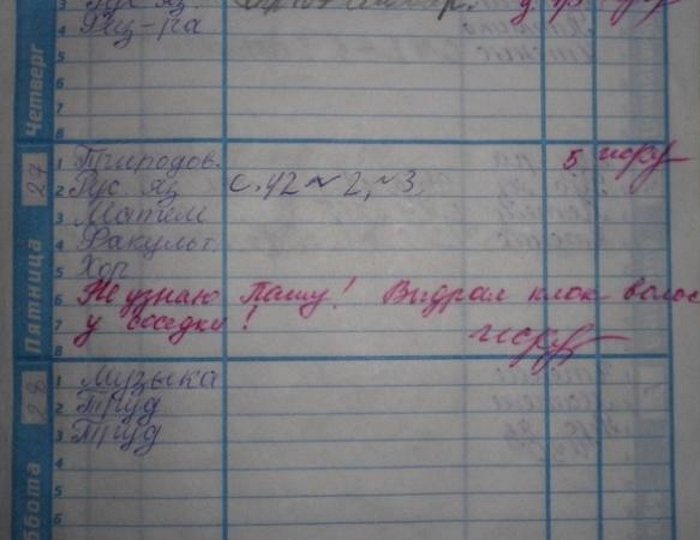 3 Рус яз.
4 Физ-ра
5
6
7
8
Четверг
27
Пятница
1 Природов. 5
2 Рус. яз с. 42 № 2, № 3.
3 Матем
4 Факульт.
5 Хор
6 Не узнаю Пашу! Выдрал клок волос
7 у соседки!
8
28
ббота
1 Музыка
2 Труд
3 Труд
4
5
6